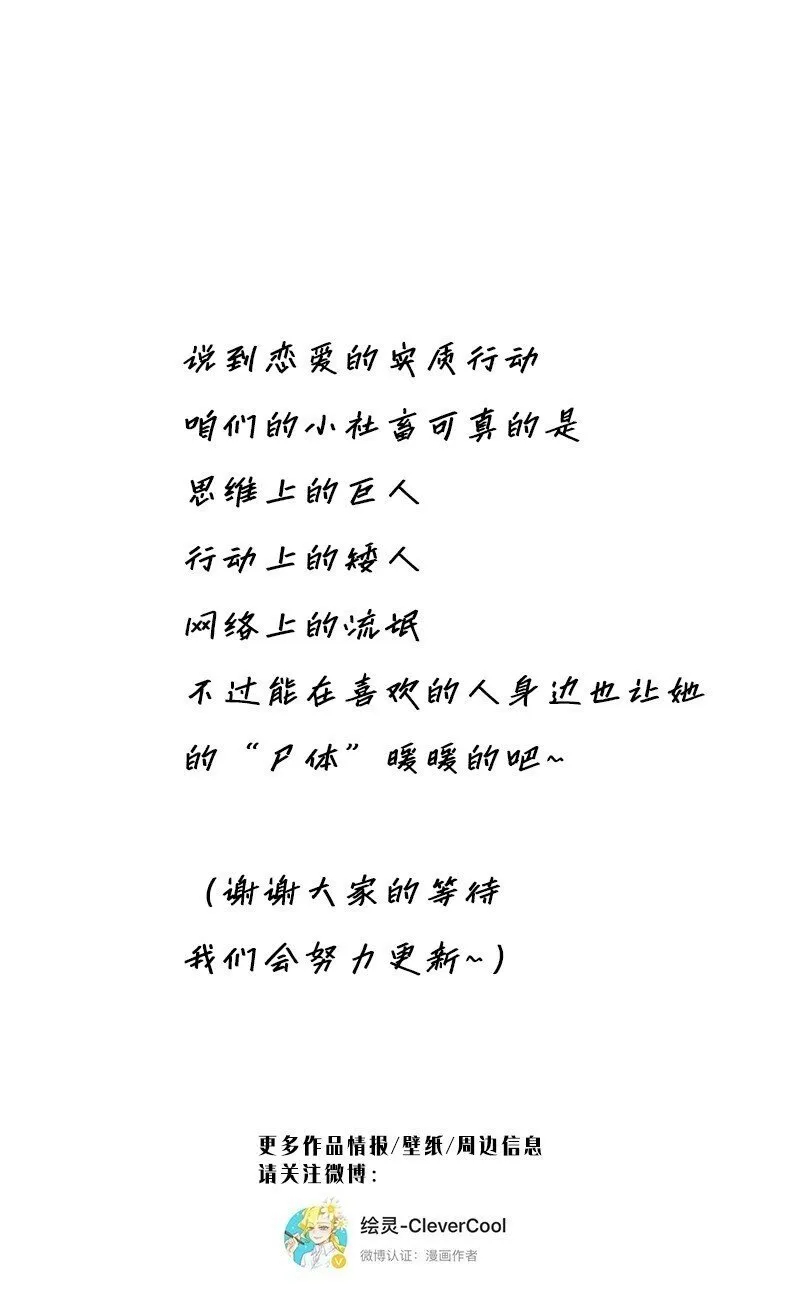 说到恋爱的实质行动
咱们的小社畜可真的是
思维上的巨人
行动上的矮人
网络上的流氓
不过能在喜欢的人身边也让她
的“尸体”暖暖的吧~
(谢谢大家的等待
我们会努力更新~)
更多作品情报/壁纸/周边信息
请关注微博:
绘灵-CleverCool
微博认证：漫画作者
V